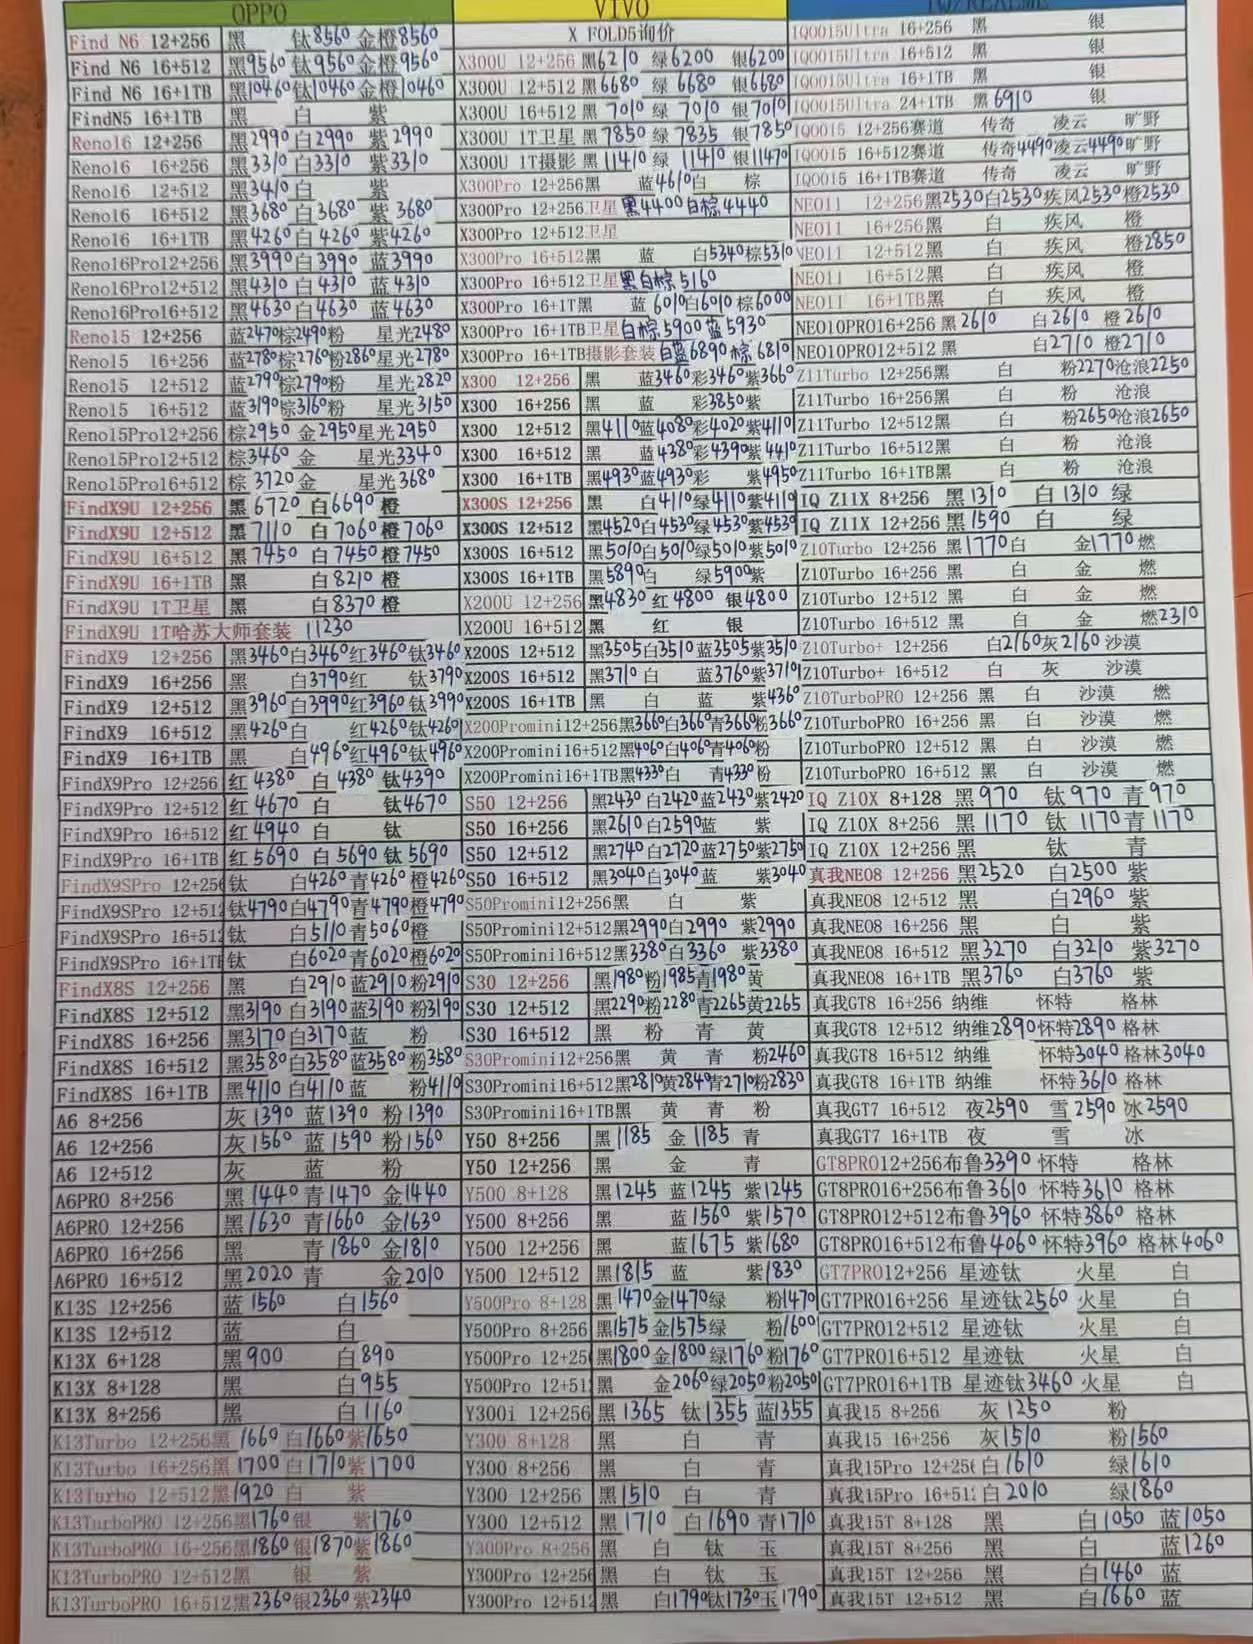 OPPO
Find N6 12+256 黑 钛8560 金橙8560
Find N6 16+512 黑9560 钛9560 金橙9560
Find N6 16+1TB 黑10460 钛10460 金橙10460
FindN5 16+1TB 黑 白 紫
Reno16 12+256 黑2990 白2990 紫2990
Reno16 16+256 黑3310 白3310 紫3310
Reno16 12+512 黑3410 白 紫
Reno16 16+512 黑3680 白3680 紫3680
Reno16 16+1TB 黑4260 白4260 紫4260
Reno16Pro12+256 黑3990 白3990 蓝3990
Reno16Pro12+512 黑4310 白4310 蓝4310
Reno16Pro16+512 黑4630 白4630 蓝4630
Reno15 12+256 蓝2470 棕2490 粉 星光2480
Reno15 16+256 蓝2780 棕2760 粉2860 星光2780
Reno15 12+512 蓝2790 棕2790 粉 星光2820
Reno15 16+512 蓝3190 棕3160 粉 星光3150
Reno15Pro12+256 棕2950 金2950 星光2950
Reno15Pro12+512 棕3460 金 星光3340
Reno15Pro16+512 棕3720 金 星光3680
FindX9U 12+256 黑6720 白6690 橙
FindX9U 12+512 黑7110 白7060 橙7060
FindX9U 16+512 黑7450 白7450 橙7450
FindX9U 16+1TB 黑 白8210 橙
FindX9U 1T卫星 黑 白8370 橙
FindX9U 1T哈苏大师套装 11230
FindX9 12+256 黑3460 白3460 红3460 钛3460
FindX9 16+256 黑 白3790 红 钛3790
FindX9 12+512 黑3960 白3990 红3960 钛3990
FindX9 16+512 黑4260 白 红4260 钛4260
FindX9 16+1TB 黑 白4960 红4960 钛4960
FindX9Pro 12+256 红4380 白4380 钛4390
FindX9Pro 12+512 红4670 白 钛4670
FindX9Pro 16+512 红4940 白 钛
FindX9Pro 16+1TB 红5690 白5690 钛5690
FindX9SPro 12+256 钛 白4260 青4260 橙4260
FindX9SPro 12+512 钛4790 白4790 青4790 橙4790
FindX9SPro 16+512 钛 白5110 青5060 橙
FindX9SPro 16+1TB 钛 白6020 青6020 橙6020
FindX8S 12+256 黑 白2910 蓝2910 粉2910
FindX8S 12+512 黑3190 白3190 蓝3190 粉3190
FindX8S 16+256 黑3170 白3170 蓝 粉
FindX8S 16+512 黑3580 白3580 蓝3580 粉3580
FindX8S 16+1TB 黑4110 白4110 蓝 粉4110
A6 8+256 灰1390 蓝1390 粉1390
A6 12+256 灰1560 蓝1590 粉1560
A6 12+512 灰 蓝 粉
A6PRO 8+256 黑1440 青1470 金1440
A6PRO 12+256 黑1630 青1660 金1630
A6PRO 16+256 黑 青1860 金1810
A6PRO 16+512 黑2020 青 金2010
K13S 12+256 蓝1560 白1560
K13S 12+512 蓝 白
K13X 6+128 黑900 白890
K13X 8+128 黑 白955
K13X 8+256 黑 白1160
K13Turbo 12+256黑1660 白1660 紫1650
K13Turbo 16+256黑1700 白1710 紫1700
K13Turbo 12+512黑1920 白 紫
K13TurboPRO 12+256黑1760 银 紫1760
K13TurboPRO 16+256黑1860 银1870 紫1860
K13TurboPRO 12+512黑 银 紫
K13TurboPRO 16+512黑2360 银2360 紫2340
VIVO
X FOLD5询价
X300U 12+256 黑6210 绿6200 银6200
X300U 12+512 黑6680 绿6680 银6680
X300U 16+512 黑7010 绿7010 银7010
X300U 1T卫星 黑7850 绿7835 银7850
X300U 1T摄影 黑11410 绿11410 银11470
X300Pro 12+256黑 蓝4610 白 棕
X300Pro 12+256卫星 黑4400 白棕4440
X300Pro 12+512卫星
X300Pro 16+512黑 蓝 白5340 棕5310
X300Pro 16+512卫星 黑白棕5160
X300Pro 16+1T黑 蓝6010 白6010 棕6000
X300Pro 16+1TB卫星 白棕5900 蓝5930
X300Pro 16+1TB摄影套装 白蓝6890 棕6810
X300 12+256 黑 蓝3460 彩3460 紫3660
X300 16+256 黑 蓝 彩3850 紫
X300 12+512 黑4110 蓝4080 彩4020 紫4110
X300 16+512 黑 蓝4380 彩4390 紫4410
X300 16+1TB 黑4930 蓝4930 彩 紫4950
X300S 12+256 黑 白4110 绿4110 紫4110
X300S 12+512 黑4520 白4530 绿4530 紫4530
X300S 16+512 黑5010 白5010 绿5010 紫5010
X300S 16+1TB 黑5890 白 绿5900 紫
X200U 12+256 黑4830 红4800 银4800
X200U 16+512 黑 红 银
X200S 12+512 黑3505 白3510 蓝3505 紫3510
X200S 16+512 黑3710 白 蓝3760 紫3710
X200S 16+1TB 黑 白 蓝 紫4360
X200Promini12+256黑3660 白3660 青3660 粉3660
X200Promini16+512黑4060 白4060 青4060 粉
X200Promini16+1TB黑4330 白 青4330 粉
S50 12+256 黑2430 白2420 蓝2430 紫2420
S50 16+256 黑2610 白2590 蓝 紫
S50 12+512 黑2740 白2720 蓝2750 紫2750
S50 16+512 黑3040 白3040 蓝 紫3040
S50Promini12+256黑 白 紫
S50Promini12+512黑2990 白2990 紫2990
S50Promini16+512黑3380 白3360 紫3380
S30 12+256 黑1980 粉1985 青1980 黄
S30 12+512 黑2290 粉2280 青2265 黄2265
S30 16+512 黑 粉 青 黄
S30Promini12+256黑 黄 青 粉2460
S30Promini16+512黑2810 黄2840 青2710 粉2830
S30Promini16+1TB黑 黄 青 粉
Y50 8+256 黑1185 金1185 青
Y50 12+256 黑 金 青
Y500 8+128 黑1245 蓝1245 紫1245
Y500 8+256 黑 蓝1560 紫1570
Y500 12+256 黑 蓝1675 紫1680
Y500 12+512 黑1815 蓝 紫1830
Y500Pro 8+128 黑1470 金1470 绿 粉1470
Y500Pro 8+256 黑1575 金1575 绿 粉1600
Y500Pro 12+256 黑1800 金1800 绿1760 粉1760
Y500Pro 12+512 黑 金2060 绿2050 粉2050
Y300i 12+256 黑1365 钛1355 蓝1355
Y300 8+128 黑 白 青
Y300 8+256 黑 白 青
Y300 12+256 黑1510 白 青
Y300 12+512 黑1710 白1690 青1710
Y300Pro 8+256 黑 白 钛 玉
Y300Pro 12+256 黑 白 钛 玉
Y300Pro 12+512 黑 白1790 钛1730 玉1790
IQ/REALME
IQOO15Ultra 16+256 黑 银
IQOO15Ultra 16+512 黑 银
IQOO15Ultra 16+1TB 黑 银
IQOO15Ultra 24+1TB 黑6910 银
IQOO15 12+256赛道 传奇 凌云 旷野
IQOO15 16+512赛道 传奇4490 凌云4490 旷野
IQOO15 16+1TB赛道 传奇 凌云 旷野
NEO11 12+256黑2530 白2530 疾风2530 橙2530
NEO11 16+256黑 白 疾风 橙
NEO11 12+512黑 白 疾风 橙2850
NEO11 16+512黑 白 疾风 橙
NEO11 16+1TB黑 白 疾风 橙
NEO10PRO16+256 黑2610 白2610 橙2610
NEO10PRO12+512 黑 白2710 橙2710
Z11Turbo 12+256黑 白 粉2270 沧浪2250
Z11Turbo 16+256黑 白 粉 沧浪
Z11Turbo 12+512黑 白 粉2650 沧浪2650
Z11Turbo 16+512黑 白 粉 沧浪
Z11Turbo 16+1TB黑 白 粉 沧浪
IQ Z11X 8+256 黑1310 白1310 绿
IQ Z11X 12+256 黑1590 白 绿
Z10Turbo 12+256 黑1770 白 金1770 燃
Z10Turbo 16+256 黑 白 金 燃
Z10Turbo 12+512 黑 白 金 燃
Z10Turbo 16+512 黑 白 金 燃2310
Z10Turbo+ 12+256 白2160 灰2160 沙漠
Z10Turbo+ 16+512 白 灰 沙漠
Z10TurboPRO 12+256 黑 白 沙漠 燃
Z10TurboPRO 16+256 黑 白 沙漠 燃
Z10TurboPRO 12+512 黑 白 沙漠 燃
Z10TurboPRO 16+512 黑 白 沙漠 燃
IQ Z10X 8+128 黑970 钛970 青970
IQ Z10X 8+256 黑1170 钛1170 青1170
IQ Z10X 12+256 黑 钛 青
真我NEO8 12+256 黑2520 白2500 紫
真我NEO8 12+512 黑 白2960 紫
真我NEO8 16+256 黑 白 紫
真我NEO8 16+512 黑3270 白3210 紫3270
真我NEO8 16+1TB 黑3760 白3760 紫
真我GT8 16+256 纳维 怀特 格林
真我GT8 12+512 纳维2890 怀特2890 格林
真我GT8 16+512 纳维 怀特3040 格林3040
真我GT8 16+1TB 纳维 怀特3610 格林
真我GT7 16+512 夜2590 雪2590 冰2590
真我GT7 16+1TB 夜 雪 冰
GT8PRO12+256布鲁3390 怀特 格林
GT8PRO16+256布鲁3610 怀特3610 格林
GT8PRO12+512布鲁3960 怀特3860 格林
GT8PRO16+512布鲁4060 怀特3960 格林4060
GT7PRO12+256 星迹钛 火星 白
GT7PRO16+256 星迹钛2560 火星 白
GT7PRO12+512 星迹钛 火星 白
GT7PRO16+512 星迹钛 火星 白
GT7PRO16+1TB 星迹钛3460 火星 白
真我15 8+256 灰1250 粉
真我15 16+256 灰1510 粉1560
真我15Pro 12+256 白1610 绿1610
真我15Pro 16+512 白2010 绿1860
真我15T 8+128 黑 白1050 蓝1050
真我15T 8+256 黑 白 蓝1260
真我15T 12+256 黑 白1460 蓝
真我15T 12+512 黑 白1660 蓝